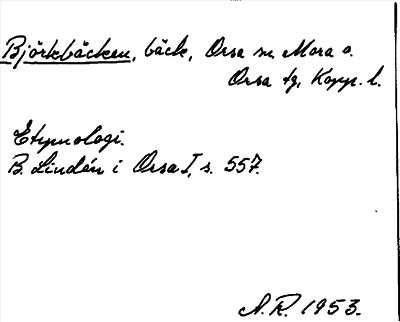 Björkbäcken, bäck, Orsa sn, Mora o.
Orsa tg, Kopp. l.
Etymologi.
B. Lindén i Orsa I, s. 557.
N.R. 1953.